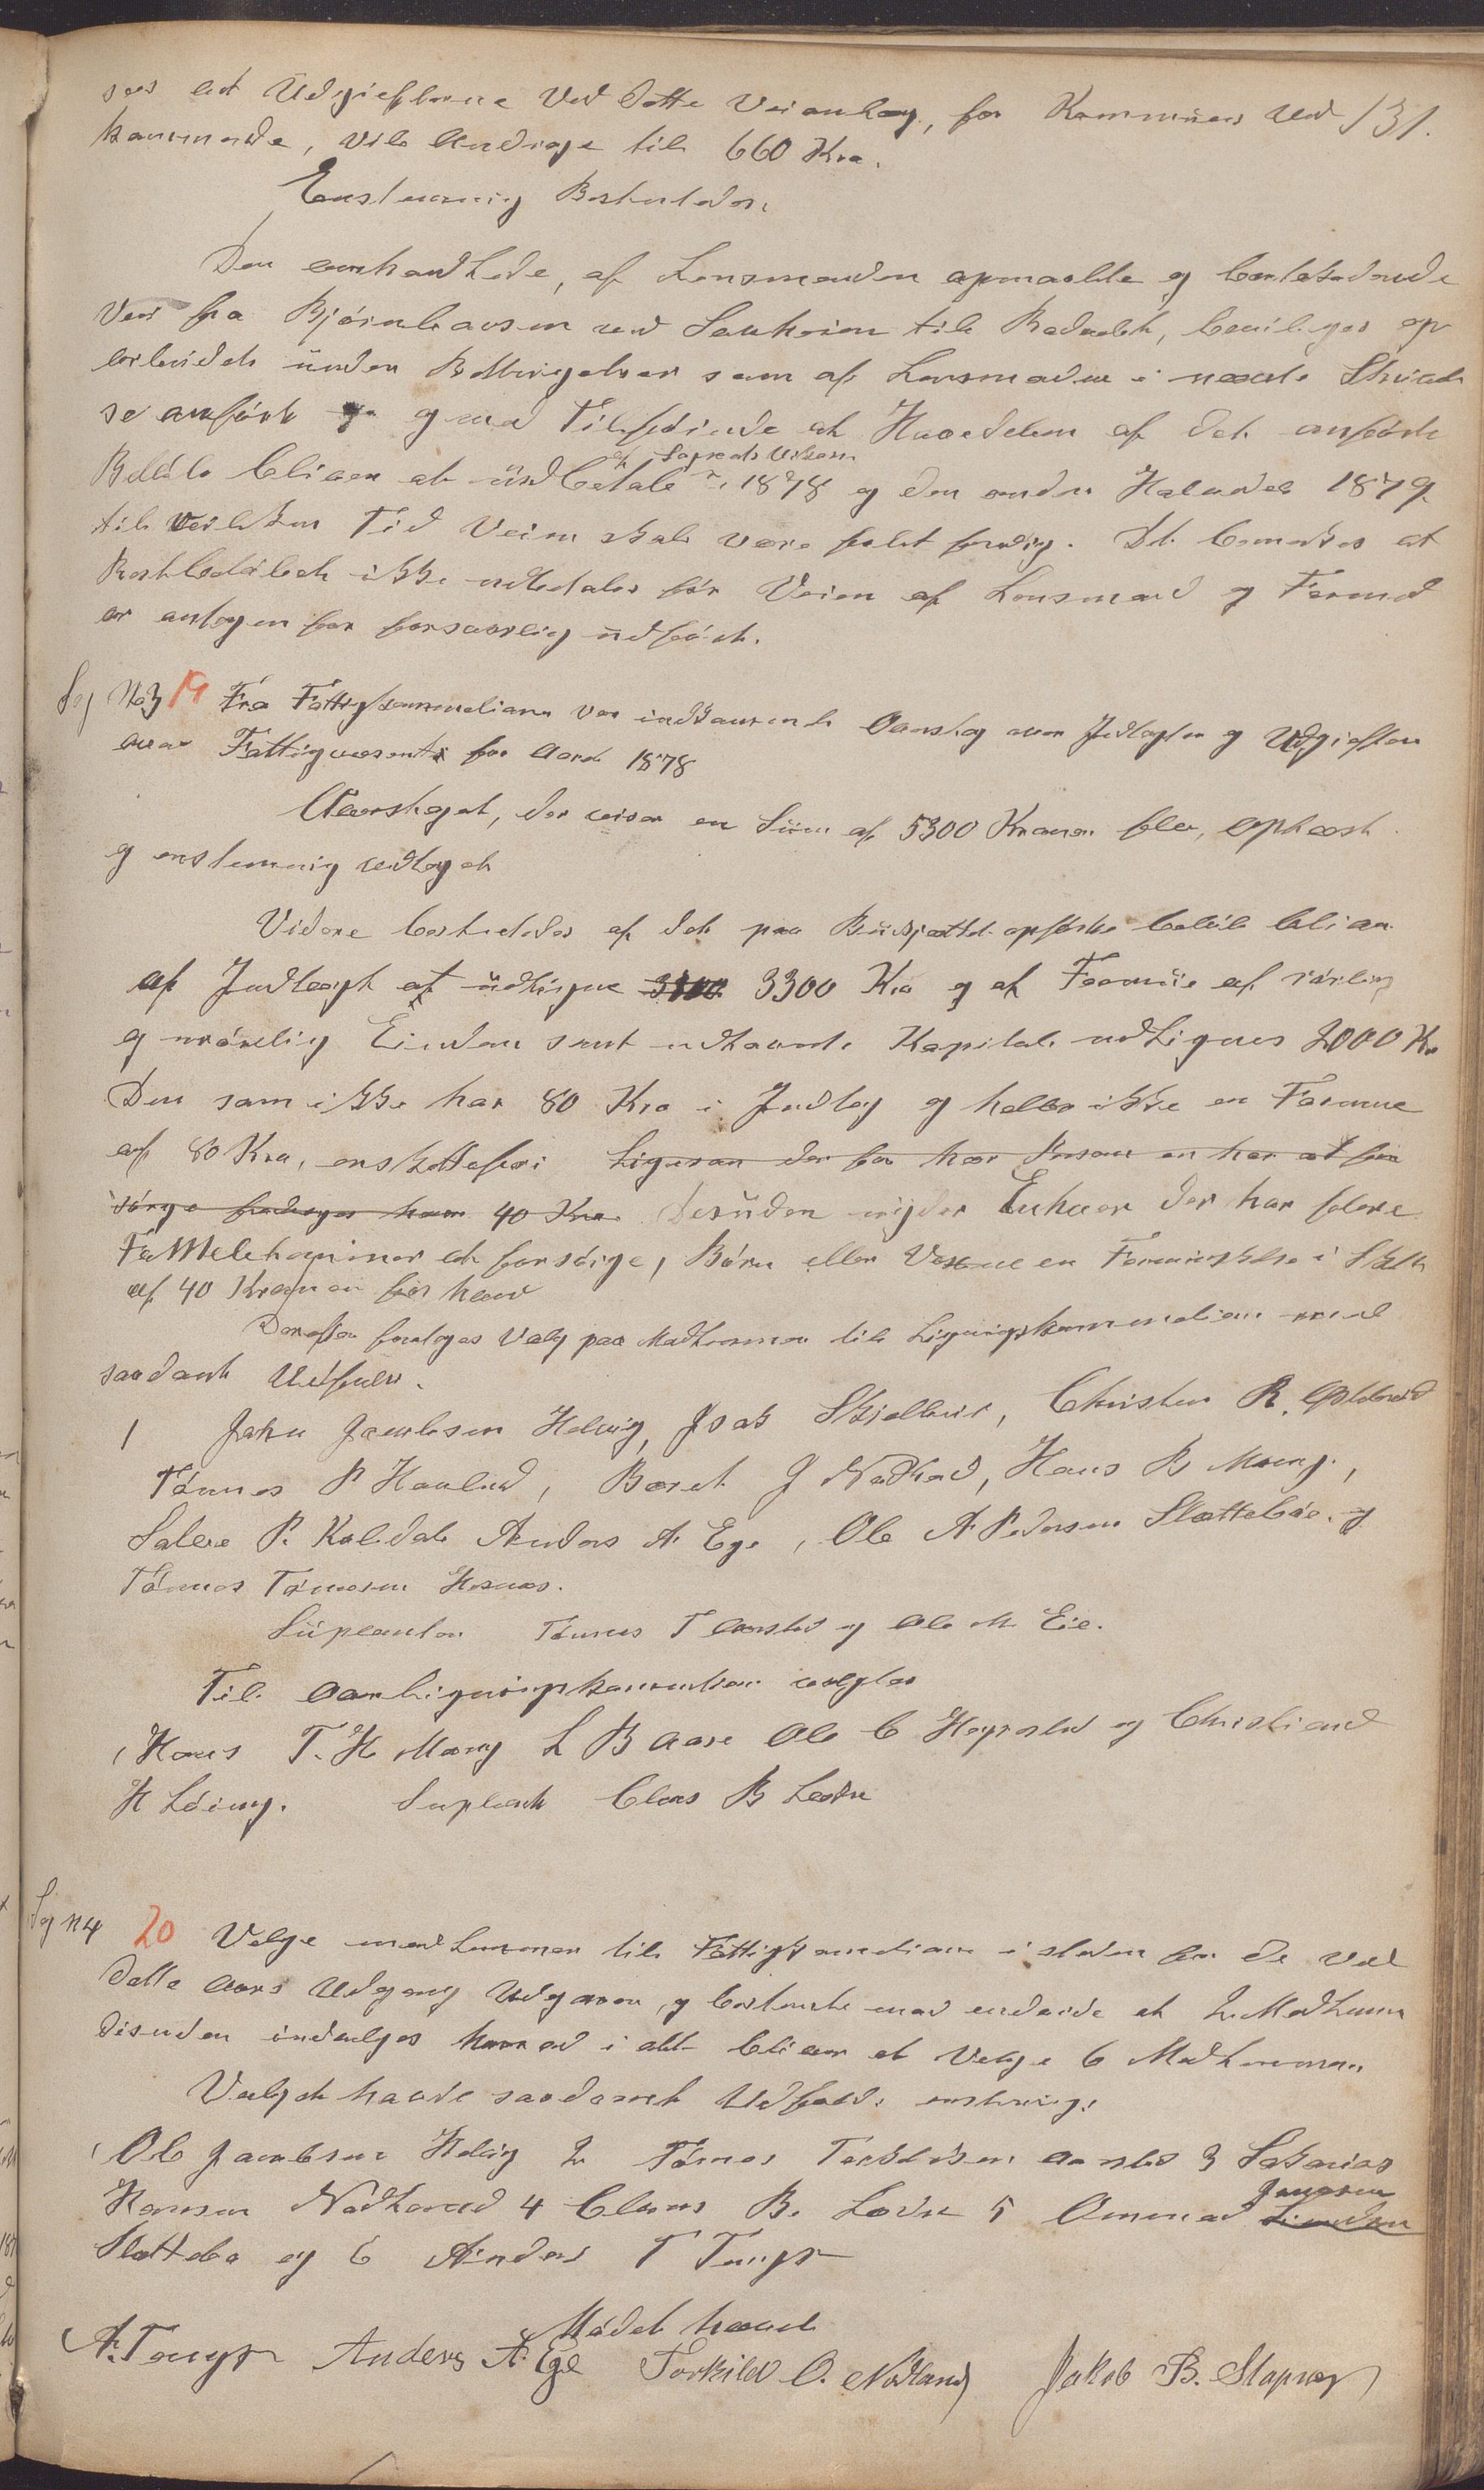 sees at Udgifterne ved dette Veianlæg, for Kommunens Ved 131.
kommende, vil Andrage til 660 Kro.
Enstemmig Besluttedes.
Den omhandlede, af Lensmanden opmaalte og
Vei fra ved til bevilges op
arbeidet under Betingelser som af Lensmanden i nævnte Skrivel
se anført og med Tilføiende at Halvdelen af det anførte
Beløb bliver at udbetale i 1878 og den anden Halvdel 1879
til hvilken Tid Veien skal være fuldt færdig. Det bemerkes at
Restbeløbet ikke udbetales før Veien af Lensmand og Formand
er antagen for forsvarlig udført.
Sag No 3 19 Fra Fattigkommisionen var indkommet Overslag over Indtægter og Udgifter
over Fattigvæsenet for Aaret 1878
Overslaget, der viser en Sum af 5300 Kroner blev, oplæst
og enstemmig vedtaget
Videre besluttedes af det paa Budsjettet opførte beløb bliver
af Indtægt at udligne 3300 Kro og af Formue af rørlig
og urørlig Eiendom samt udlaante Kapitale udlignes 2000 Kr
Den som ikke har 80 Kro i Indtæg og heller ikke en Formue
af 80 Kro, er skattefri Ligesaa der for hver Person en har at for
sørge fradrages ham 40 Kro Desuden nyder Enhver der har flere
Familelemmer at forsørge, Børn eller Voxne en Forminskelse i Skat
af 40 Kroner for hver
Derefter foretoges Valg paa Medlemmer til Ligningskommisionen med
saadant Udfald.
1 John Jacobsen Helvig, Isak Christen R.
Tønnes P Beret J Nodland, Hans B Mong,
Salve P. Koldal Anders A. Ege, Ole A Pedersen Slettebøe og
Tønnes Tørresen
Suplanter Tønnes T Aarstad og Ole M Eie.
Til Overligningskommisionen valgtes
1 Hans T. H Mong L B Aase Ole C og Christian
H Løining. Suplant Claus B Lædre
Sag N 4 20 Velge medlemmer til Fattigkommisionen i steden for de ved
dette Aars Udgang Udgaaende, og bestemte med at 2 Medlemmer
desuden indvelges hvorved i alt bliver at Velge 6 Medlemmer
Valget havde saadant Udfald: enstemmig.
1 Ole Jacobsen Helvig 2 Tønnes Torkildsen Aarstad 3 Sakarias
Hansen Nodland 4 Claus B. Lædre 5 Ommund Jansen
Slettebø og 6 Anders T Tengs
Mødet hævet
A. Tengs Anders A. Ege Torkild O. Nodland Jakob B. Slapnæs